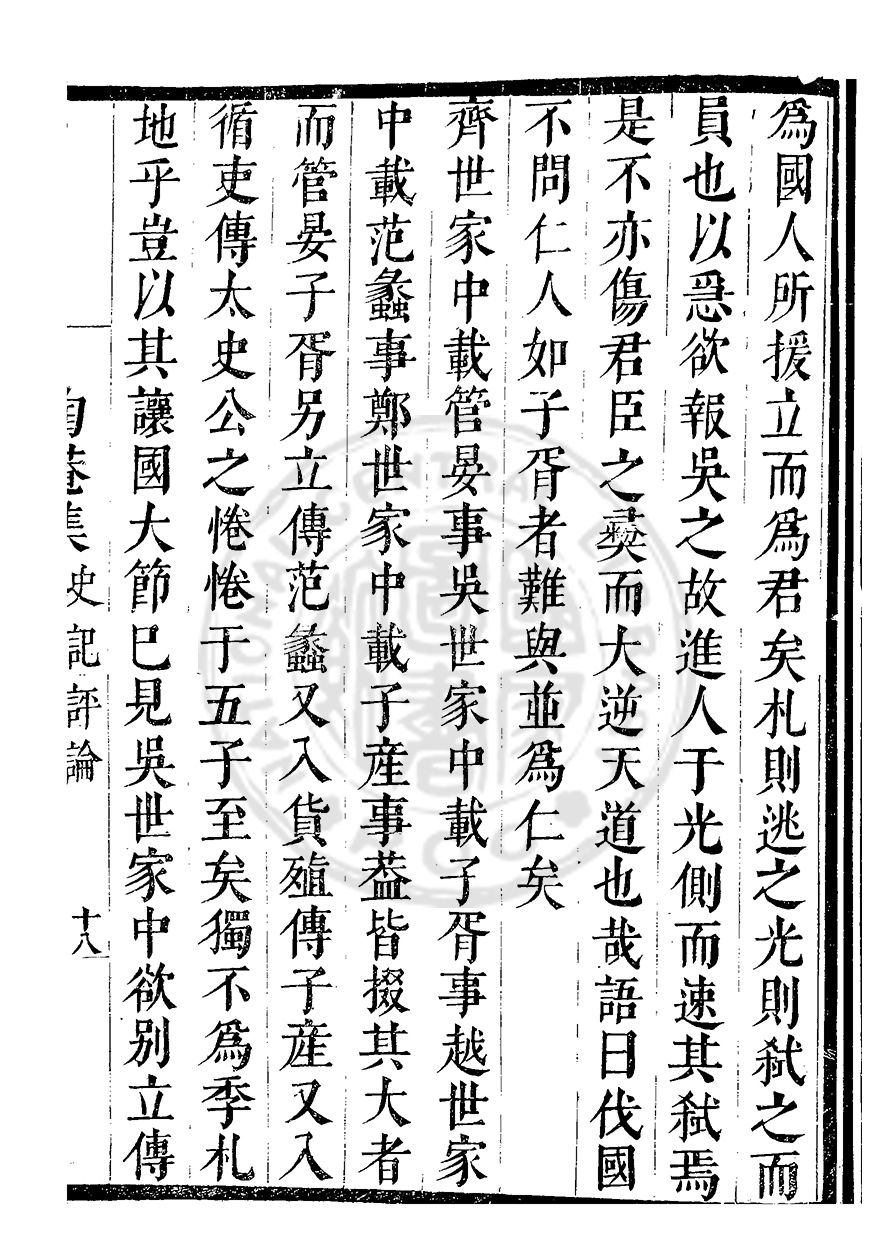 爲國人所援立而爲君矣札則逃之光則弑之而
員也以急欲報吳之故進人于光側而速其弑焉
是不亦傷君臣之彜而大逆天道也哉語曰伐國
不問仁人如子胥者難與並爲仁矣
齊世家中載管晏事吳世家中載子胥事越世家
中載范蠡事鄭世家中載子産事葢皆掇其大者
而管晏子胥另立傳范蠡又入貨殖傳子産又入
循吏傳太史公之惓惓于五子至矣獨不爲季札
地乎豈以其讓國大節巳見吳世家中欲别立傳
陶菴集史記評論 十八